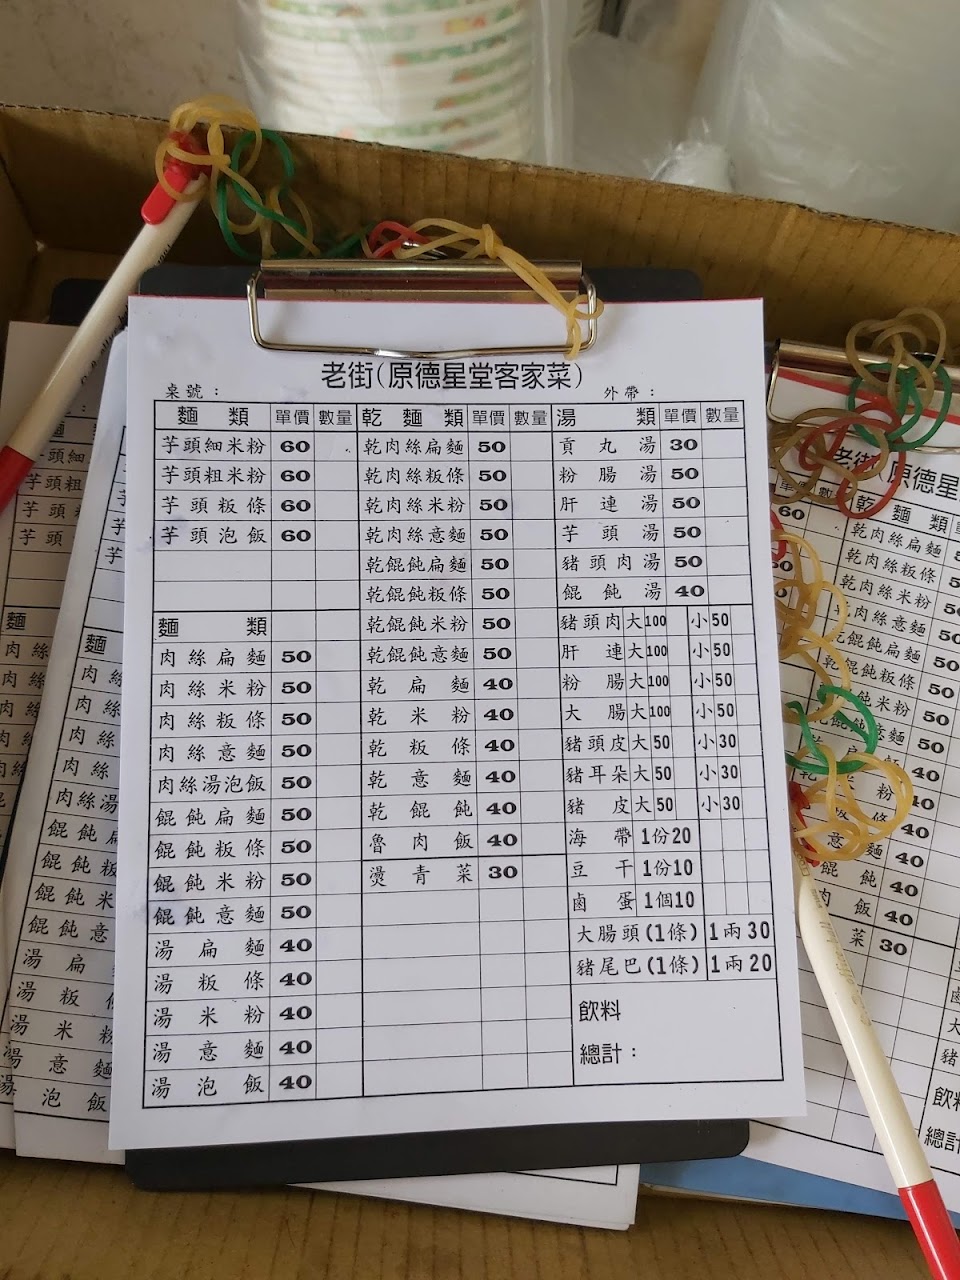 老街(原德星堂客家菜)
桌號： 外帶：
麵類 單價 數量
芋頭細米粉 60
芋頭粗米粉 60
芋頭粄條 60
芋頭泡飯 60
麵類
肉絲扁麵 50
肉絲米粉 50
肉絲粄條 50
肉絲意麵 50
肉絲湯泡飯 50
餛飩扁麵 50
餛飩粄條 50
餛飩米粉 50
餛飩意麵 50
湯扁麵 40
湯粄條 40
湯米粉 40
湯意麵 40
湯泡飯 40
乾麵類 單價 數量
乾肉絲扁麵 50
乾肉絲粄條 50
乾肉絲米粉 50
乾肉絲意麵 50
乾餛飩扁麵 50
乾餛飩粄條 50
乾餛飩米粉 50
乾餛飩意麵 50
乾扁麵 40
乾米粉 40
乾粄條 40
乾意麵 40
乾餛飩 40
魯肉飯 40
燙青菜 30
湯類 單價 數量
貢丸湯 30
粉腸湯 50
肝連湯 50
芋頭湯 50
豬頭肉湯 50
餛飩湯 40
豬頭肉 大100 小50
肝連 大100 小50
粉腸 大100 小50
大腸 大100 小50
豬頭皮 大50 小30
豬耳朵 大50 小30
豬皮 大50 小30
海帶 1份20
豆干 1份10
鹵蛋 1個10
大腸頭(1條) 1兩30
豬尾巴(1條) 1兩20
飲料
總計：